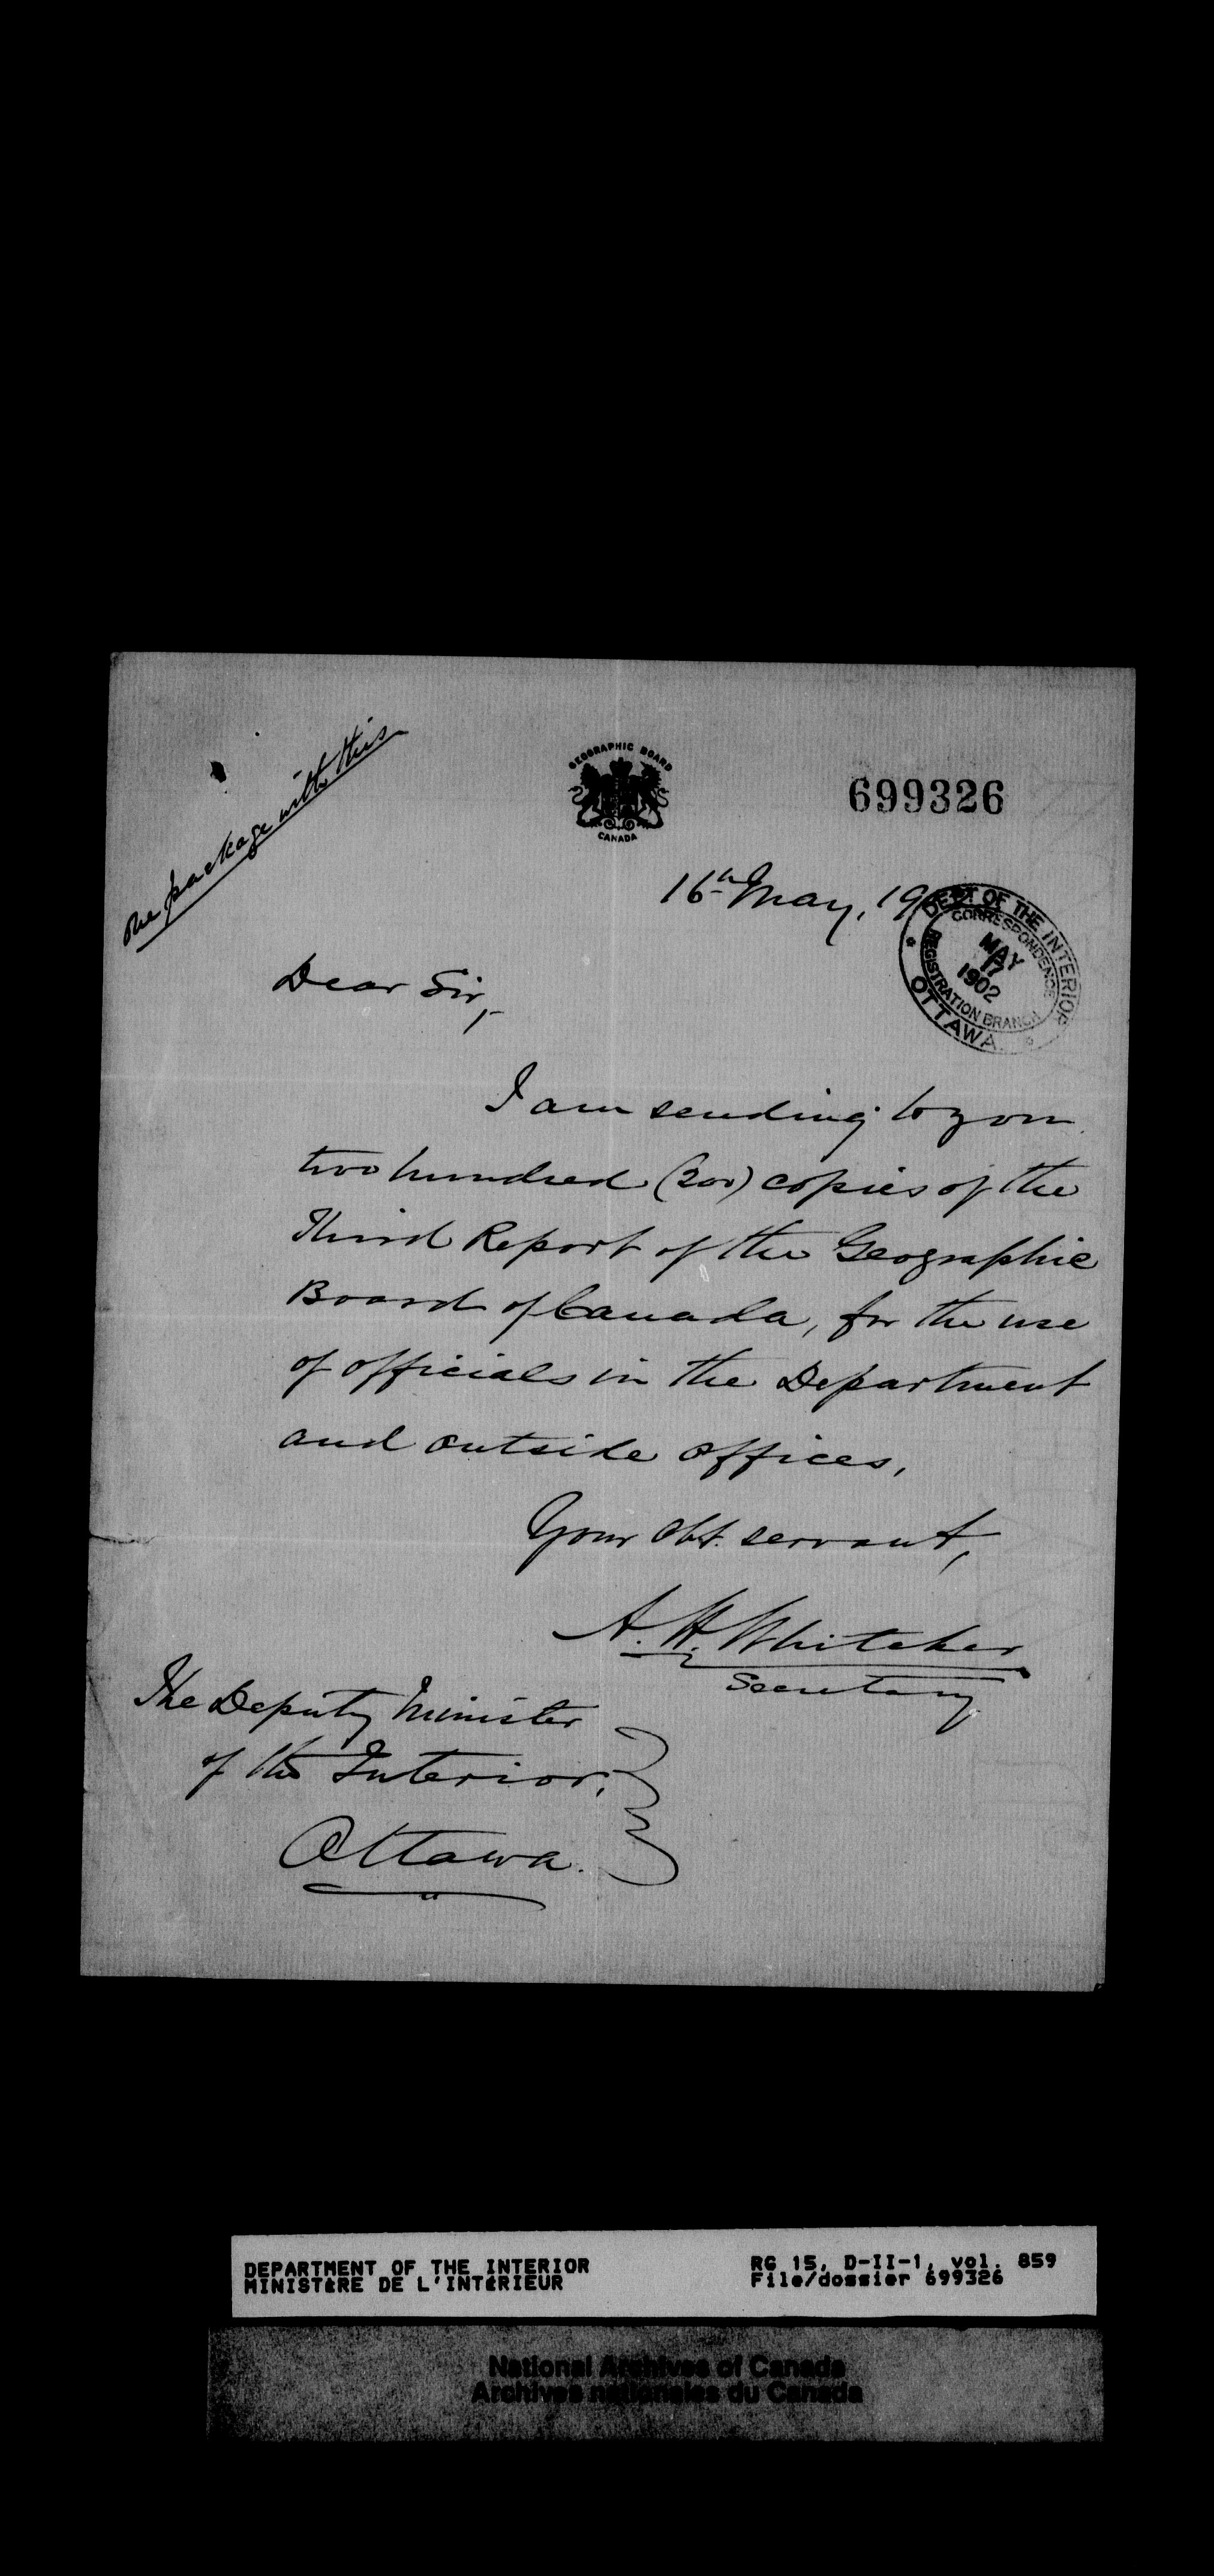 one package with this
GEOGRAPHIC BOARD
CANADA
699326
16th May, 19
DEPT OF THE INTERIOR
CORRESPONDENCE
MAY
17
1902
REGISTRATION BRANCH
OTTAWA.
Dear Sir,
I am sending to you
two hundred (200) copies of the
Third Report of the Geographic
Board of Canada, for the use
of officials in the Department
and outside offices,
Your obt. servant,
A. H. Whitcher
Secretary
The Deputy Minister
of the Interior,
Ottawa.
DEPARTMENT OF THE INTERIOR
MINISTÈRE DE L'INTÉRIEUR
RG 15, D-II-1, vol. 859
File/dossier 699326
National Archives of Canada
Archives nationales du Canada